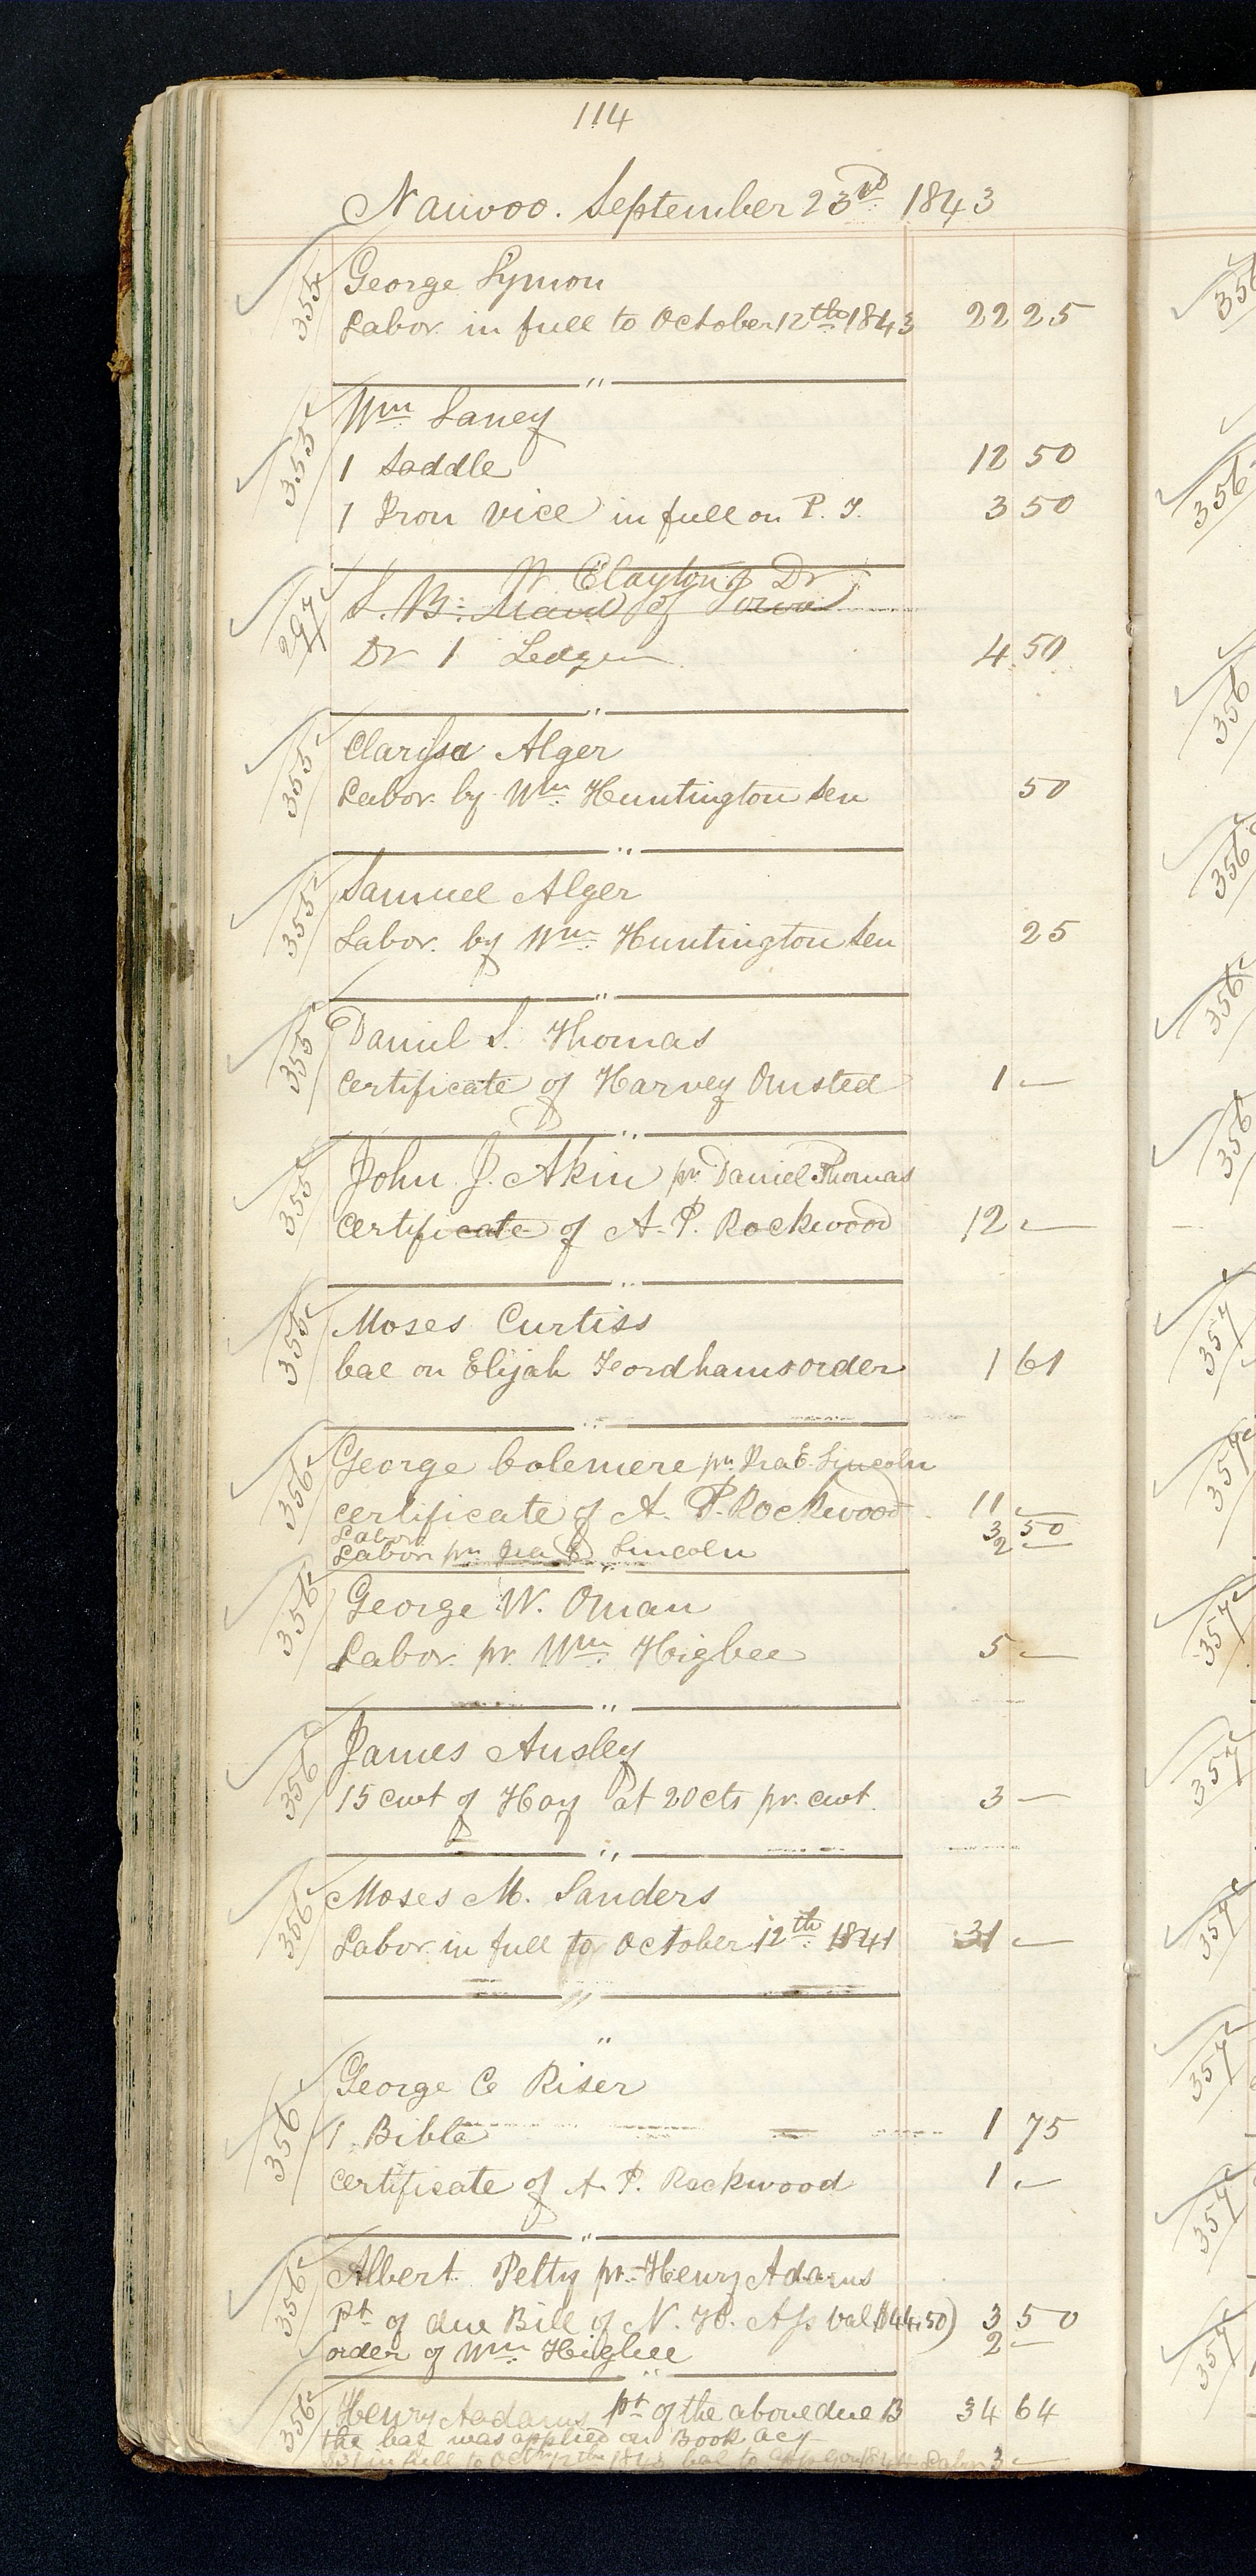 114
Nauvoo. September 23rd 1843
355 George Symon
Labor in full to October 12th 1843 22 25
"
353 Wm Laney
1 Saddle 12 50
1 Iron vice in full on P. T. 3 50
"
W Clayton Dr
297 S. B. of Iowa
Dr 1 Ledger 4 50
"
355 Clarissa Alger
Labor by Wm Huntington Sen 50
"
355 Samuel Alger
Labor. by Wm Huntington Sen 25
"
355 Daniel S. Thomas
certificate of Harvey Omsted 1 —
"
355 John J. Akin pr Daniel Thomas
certificate of A. P. Rockwood 12 —
"
356 Moses Curtiss
bal on Elijah Fordhams order 1 61
"
356 George Colemere pr Ira E. Lincoln
certificate of A. P. Rockwood 11 —
Labor 3 50
Labor pr Ira E Lincoln 2 —
"
356 George W. Oman
Labor pr. Wm Higbee 5 —
"
356 James Ansley
15 cwt of Hay at 20 cts pr. cwt. 3 —
"
356 Moses M. Sanders
Labor in full to October 12th 1841 31 —
"
"
356 George C Riser
1 Bible 1 75
certificate of A. P. Rockwood 1 —
"
356 Albert Petty pr. Henry Adams
Pt of due Bill of N. H. Ass. val $44.50) 3 50
order of Wm Higbee 2 —
"
356 Henry Aadams pt of the above due B 34 64
the bal was applied on Book acy
in full to Octr 12th 1843 bal to 3 —
356
356
356
356
356
356
357
357
357
357
357
357
357
357